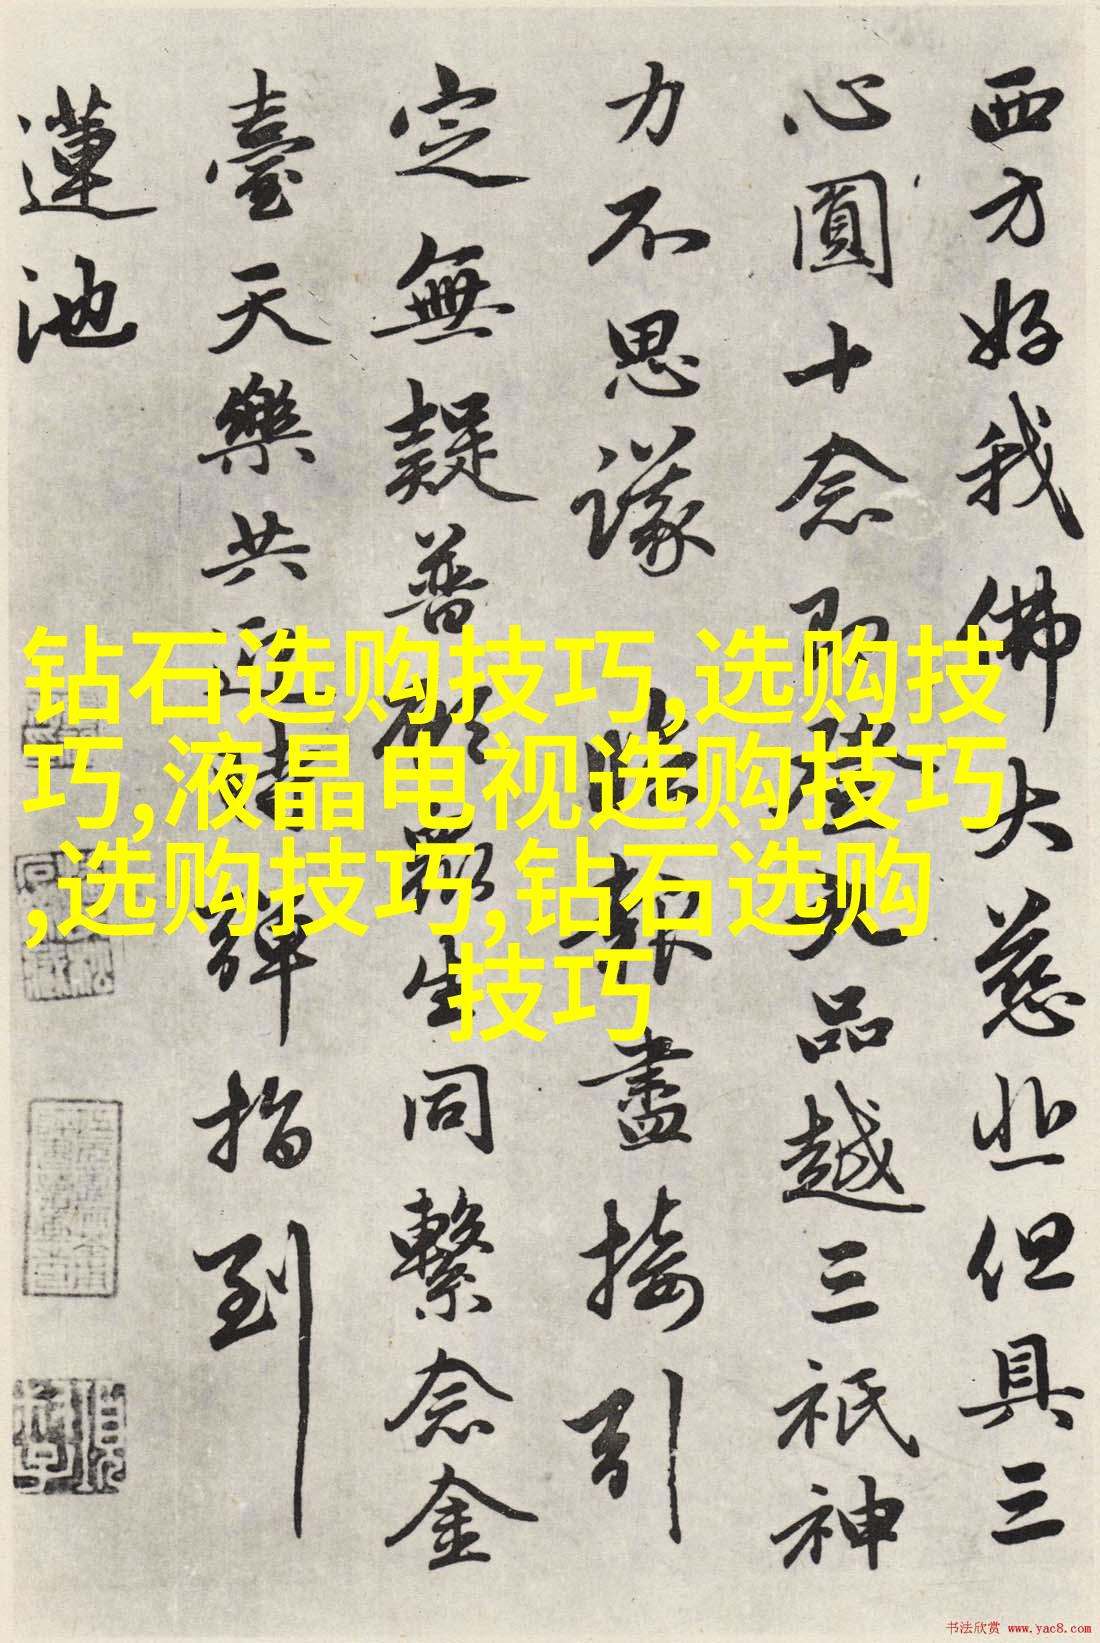 西方好我佛大慈悲但具三
心圓十念即登九品越三祇神
力不思議臨報盡接引
定無疑普願眾生同繫念金
臺天樂共迎時彈指到
蓮池
钻石选购技巧,选购技
巧,液晶电视选购技巧
,选购技巧,钻石选购
技巧
书法欣赏 www.yac8.com